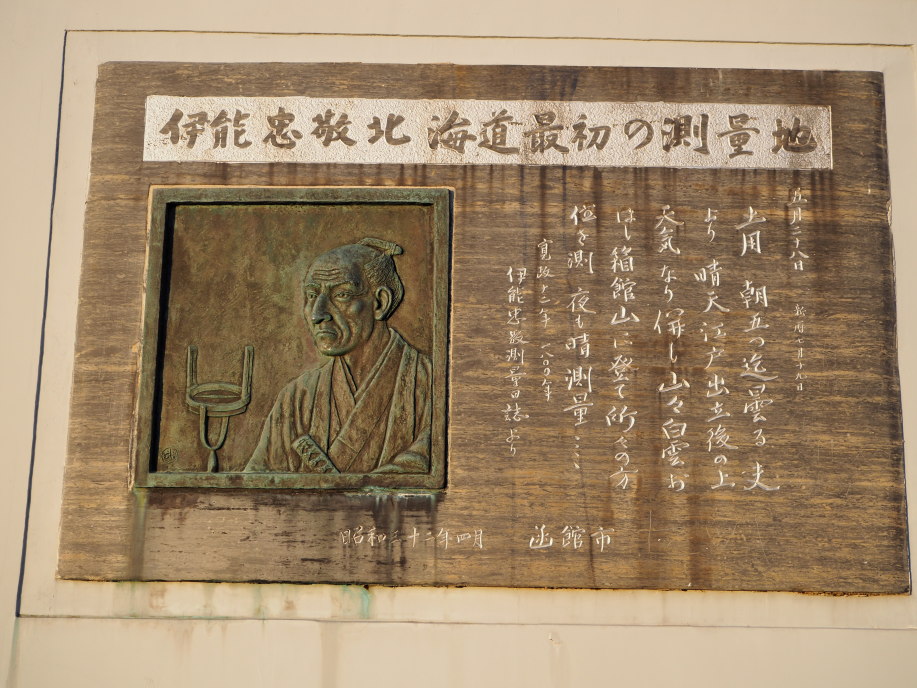 伊能忠敬北海道最初の測量地
五月二十八日 新暦七月十九日
土用 朝五つ迄曇る 夫
より晴天 江戸出立後の上
天気なり 併し山々白雲お
ほし 箱館山に登て所々の方
位を測 夜も晴測量ここ
寛政十二年 一八〇〇年
伊能忠敬測量日誌より
昭和三十二年四月 函館市